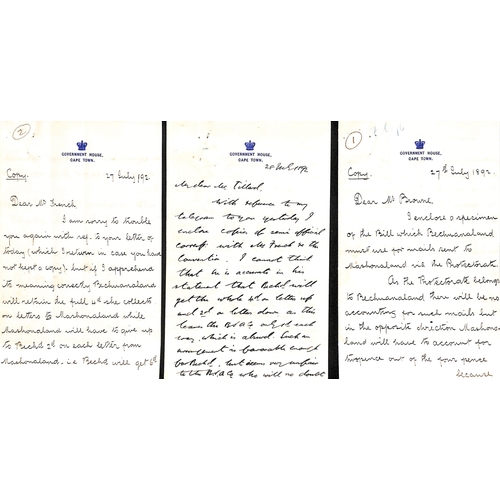 2
GOVERNMENT HOUSE,
CAPE TOWN.
Copy.
27 July /92.
Dear Mr French
I am sorry to trouble
you again with ref. to your letter of
today (which I return in case you have
not kept a copy). but if I apprehend
its meaning correctly Bechuanaland
will retain the full 4d she collects
on letters to Mashonaland while
Mashonaland will have to give up
to Bechd 2d on each letter from
Mashonaland. i.e Bechd will get 6d
GOVERNMENT HOUSE,
CAPE TOWN.
1892
My dear Mr
With reference to my
telegram to you yesterday I
enclose copies of semi official
with Mr French re the
Convention. I cannot think
that he is accurate in his
statement that Bechd will
get the whole 4d a letter up
and 2d a letter down as this
leaves the B.S.A.Co
way, which is absurd. Such an
arrangement is favourable enough
for Bechd, but seems
to the B.S.A.Co who will no doubt
1
GOVERNMENT HOUSE,
CAPE TOWN.
Copy.
27th July 1892.
Dear Mr Browne,
I enclose a specimen
of the Bill which Bechuanaland
must use for mails sent to
Mashonaland via the Protectorate
As the Protectorate belongs
to Bechuanaland there will be no
accounting for such mails but
in the opposite direction Mashona-
land will have to account for
twopence out of the four pence
because